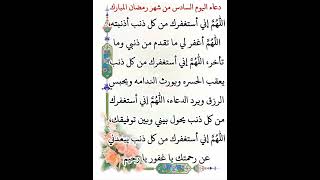 دعاء اليوم السادس من شهر رمضان المبارك
اللَّهُمَّ إني أستغفرك من كل ذنب أذنبته،
اللَّهُمَّ أغفر لي ما تقدم من ذنبي وما
تأخر، اللَّهُمَّ إني أستغفرك من كل ذنب
يعقب الحسره ويورث الندامه ويحبس
الرزق ويرد الدعاء، اللَّهُمَّ إني أستغفرك
من كل ذنب يحول بيني وبين توفيقك،
اللَّهُمَّ إني أستغفرك من كل ذنب يبعدني
عن رحمتك يا غفور يا رحيم